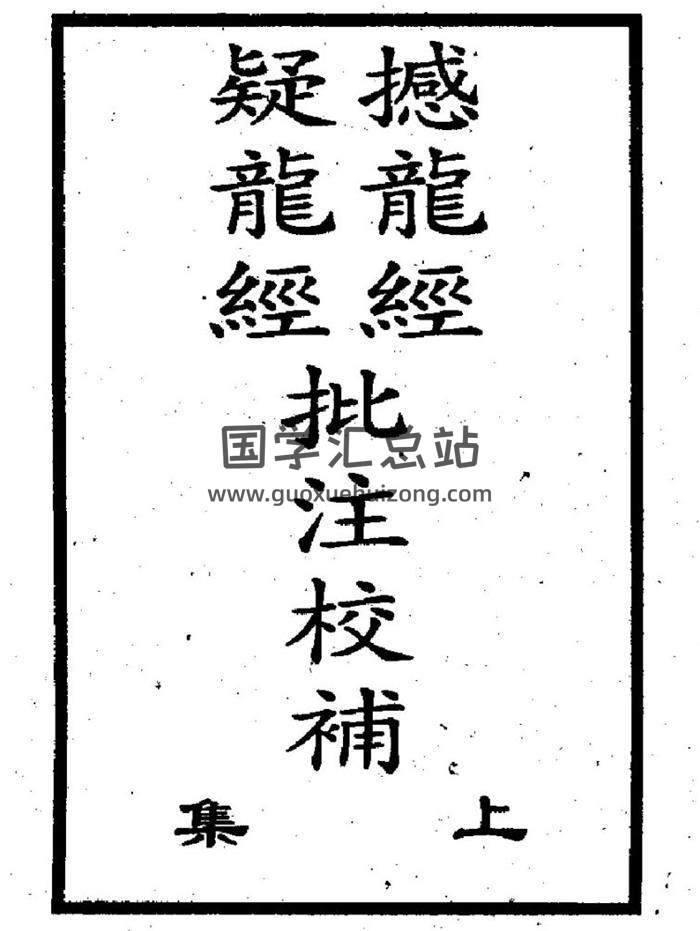 撼龍經
疑龍經
批注校補
上集
国学汇总站
www.guoxuehuizong.com